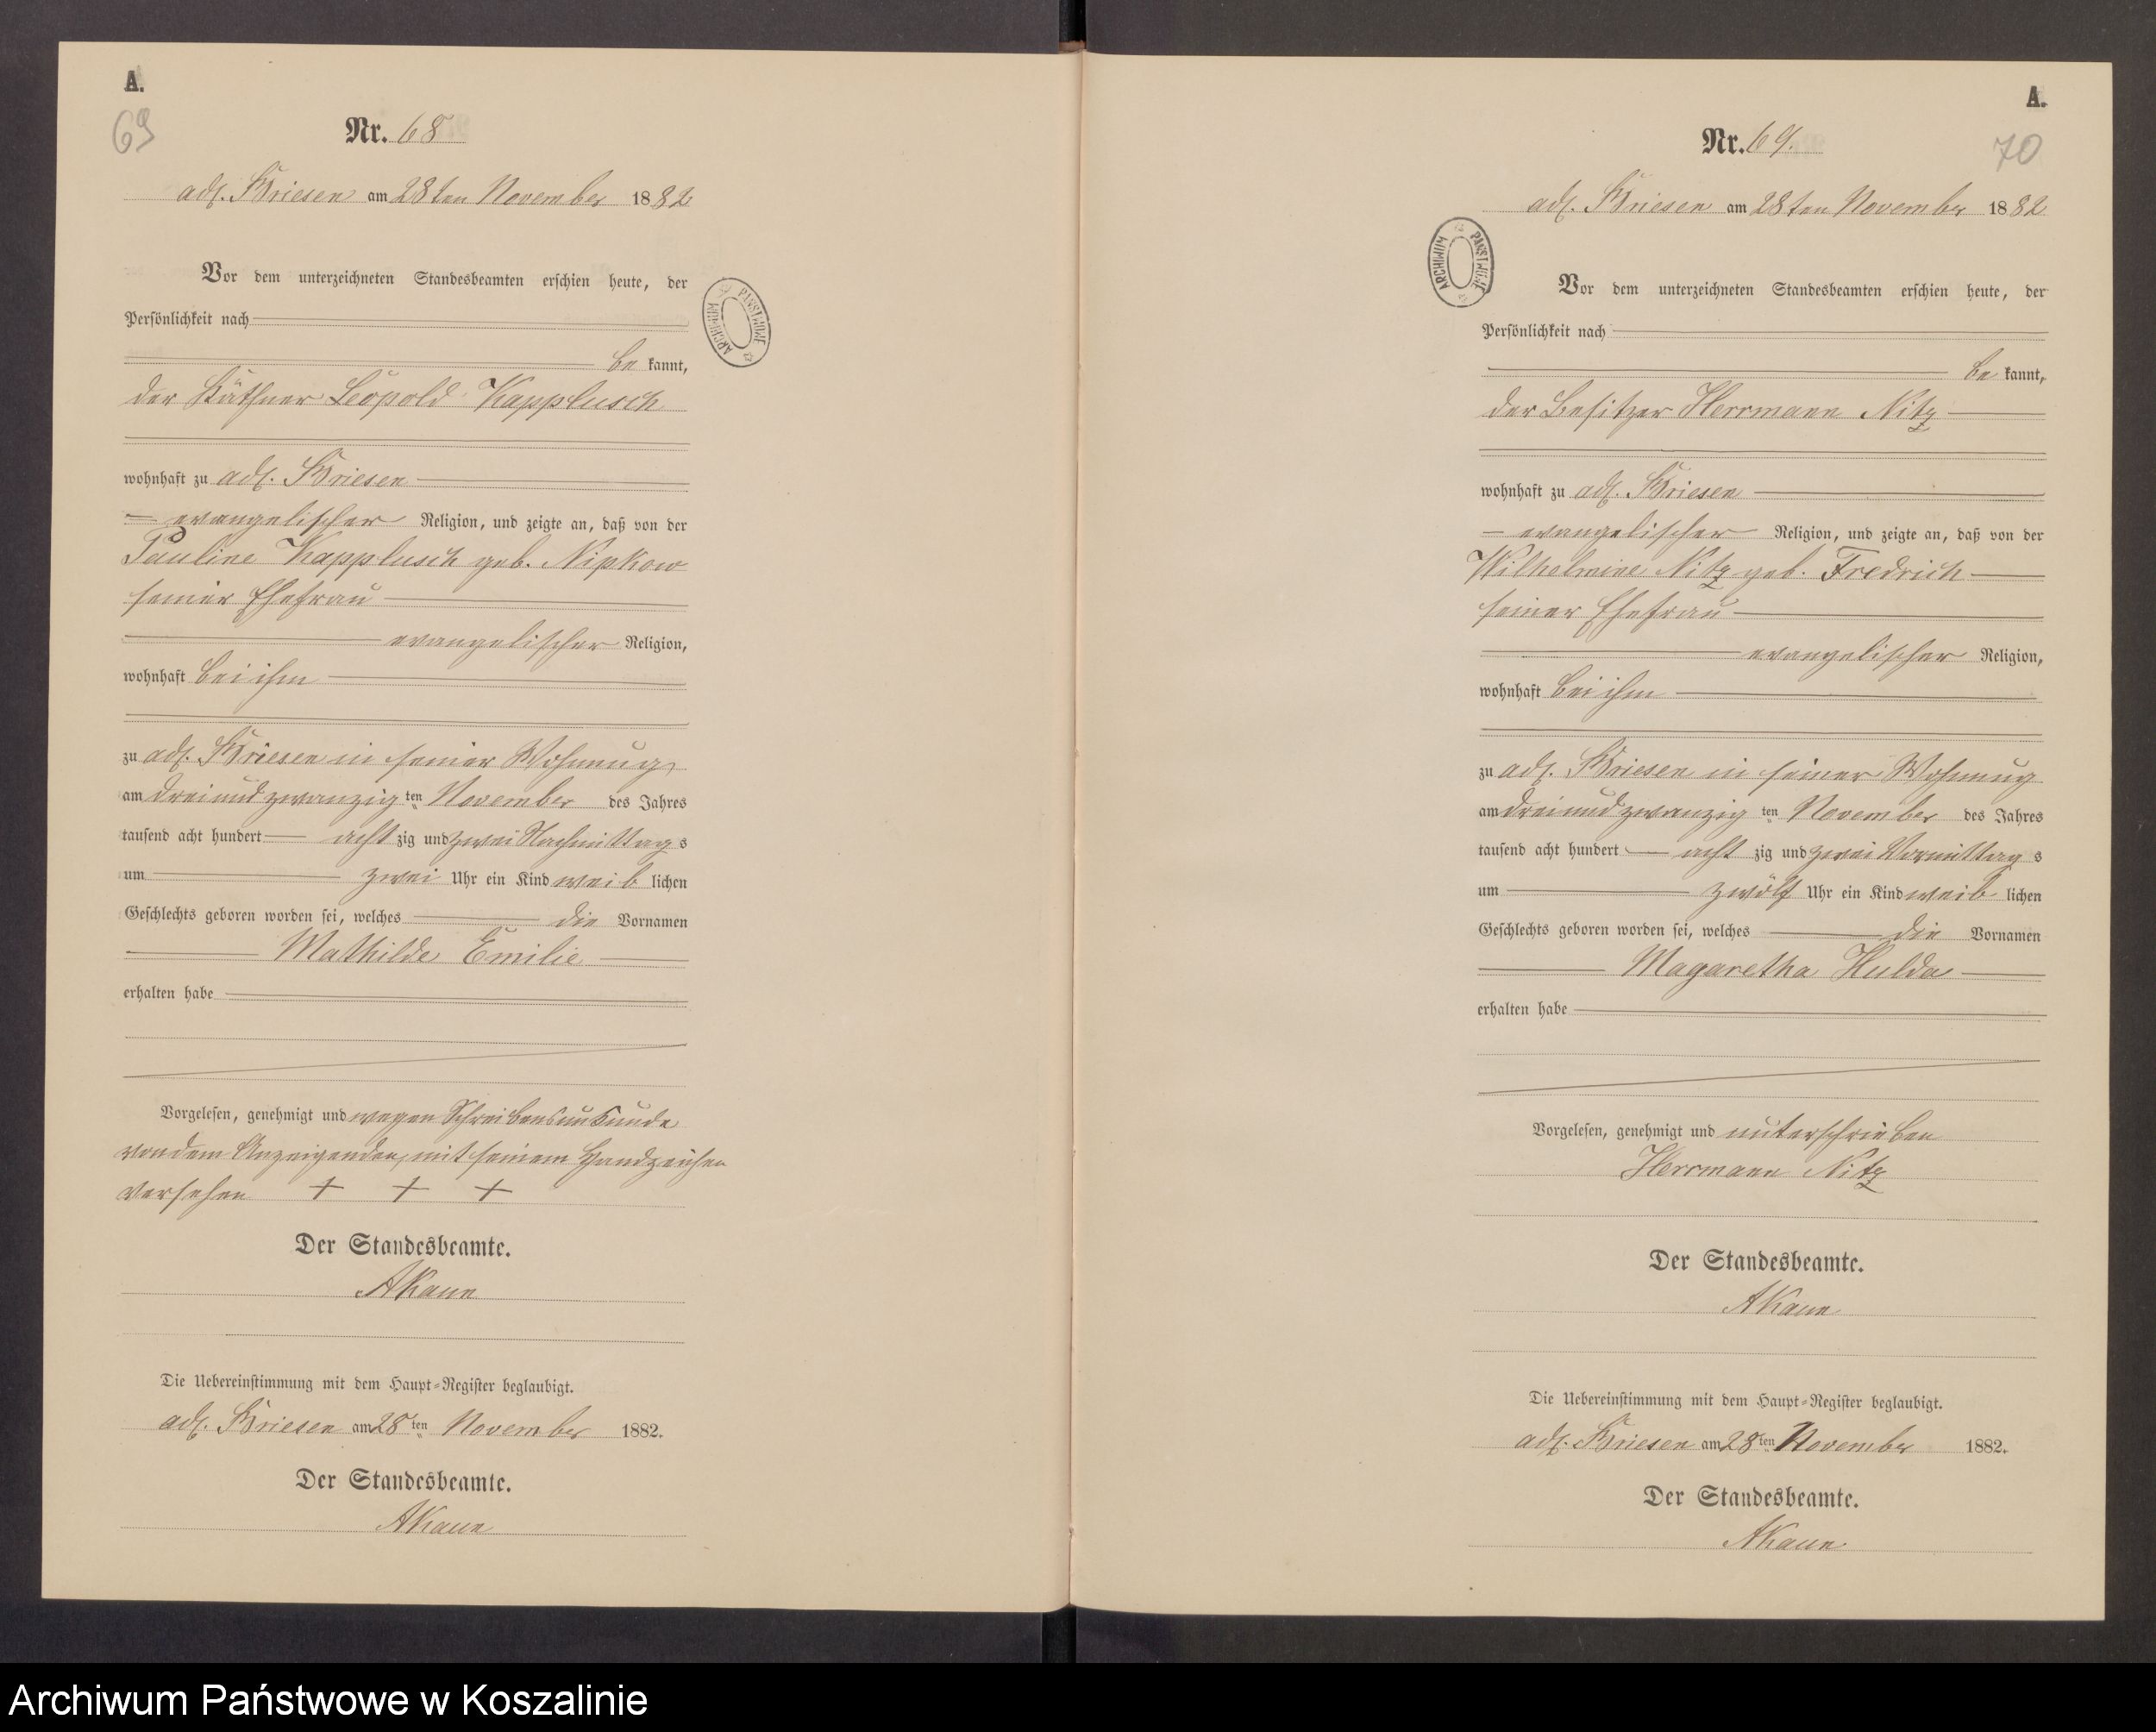 A.
69
Nr. 68
adl. Briesen am 28ten November 1882
Vor dem unterzeichneten Standesbeamten erschien heute, der
Persönlichkeit nach
be kannt,
der Käthner Leopold Kapplusch
wohnhaft zu adl. Briesen
evangelischer Religion, und zeigte an, daß von der
Pauline Kapplusch geb. Nipkow
seiner Ehefrau
evangelischer Religion,
wohnhaft bei ihm
zu adl. Briesen in seiner Wohnung
am dreiundzwanzig ten November des Jahres
tausend acht hundert acht zig und zwei Nachmittag s
um zwei Uhr ein Kind weib lichen
Geschlechts geboren worden sei, welches die Vornamen
Mathilde Emilie
erhalten habe
Vorgelesen, genehmigt und wegen Schreibensunkunde
von dem Anzeigenden, mit seinem Handzeichen
versehen + + +
Der Standesbeamte.
AKaun
Die Uebereinstimmung mit dem Haupt-Register beglaubigt.
adl. Briesen am 28 ten November 1882.
Der Standesbeamte.
AKaun
ARCHIWUM PAŃSTWOWE
A.
70
Nr. 69.
adl. Briesen am 28ten November 1882
Vor dem unterzeichneten Standesbeamten erschien heute, der
Persönlichkeit nach
be kannt,
der Besitzer Herrmann Nitz
wohnhaft zu adl. Briesen
evangelischer Religion, und zeigte an, daß von der
Wilhelmine Nitz geb. Fredrich
seiner Ehefrau
evangelischer Religion,
wohnhaft bei ihm
zu adl. Briesen in seiner Wohnung
am dreiundzwanzig ten November des Jahres
tausend acht hundert acht zig und zwei Vormittag s
um zwölf Uhr ein Kind weib lichen
Geschlechts geboren worden sei, welches die Vornamen
Magaretha Hulda
erhalten habe
Vorgelesen, genehmigt und unterschrieben
Herrmann Nitz
Der Standesbeamte.
AKaun
Die Uebereinstimmung mit dem Haupt-Register beglaubigt.
adl. Briesen am 28 ten November 1882.
Der Standesbeamte.
AKaun
ARCHIWUM PAŃSTWOWE
Archiwum Państwowe w Koszalinie